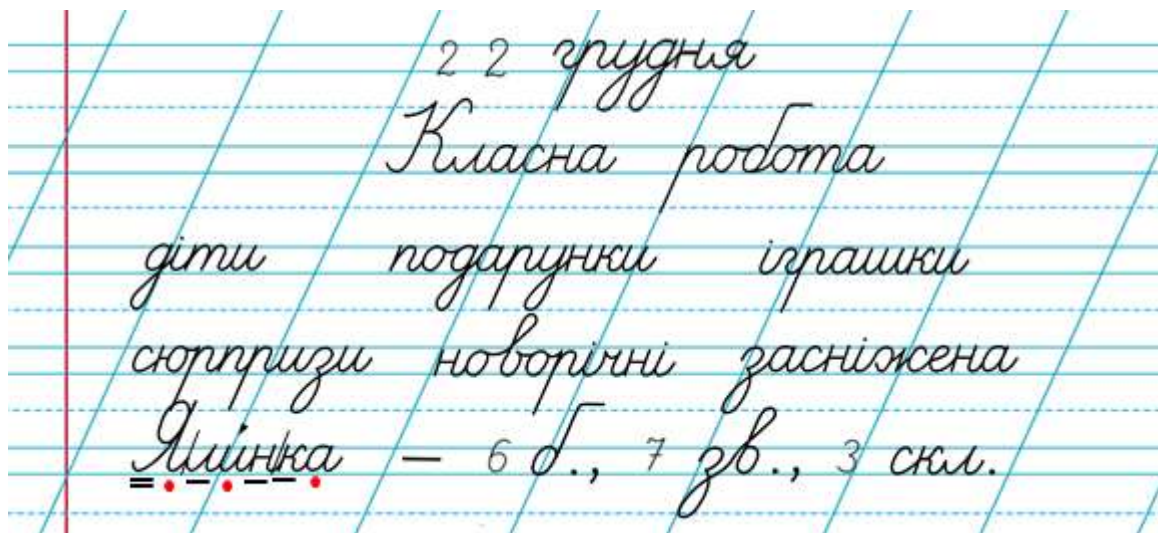 22 грудня
Класна робота
діти подарунки іграшки
сюрпризи новорічні засніжена
Ялинка – 6 б., 7 зв., 3 скл.